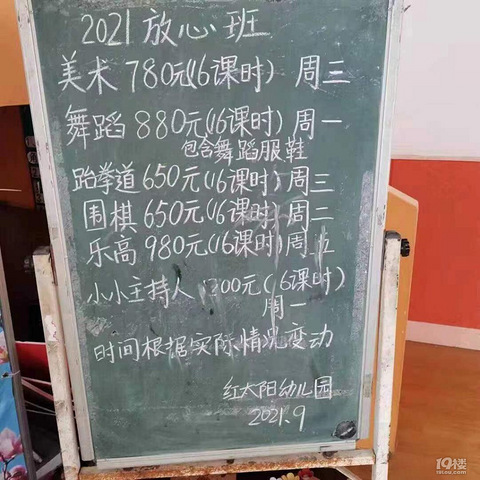 2021放心班
美术 780元(16课时) 周三
舞蹈 880元(16课时) 周一
包含舞蹈服鞋
跆拳道 650元(16课时) 周三
围棋 650元(16课时) 周二
乐高 980元(16课时) 周五
小小主持人 200元(16课时)
周一
时间根据实际情况变动
红太阳幼儿园
2021.9
19楼
19lou.com